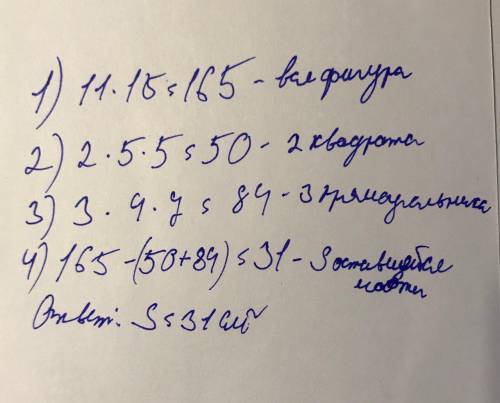 1) 11 · 15 = 165 - вся фигура
2) 2 · 5 · 5 = 50 - 2 квадрата
3) 3 · 4 · 7 = 84 - 3 прямоугольника
4) 165 - (50+84) = 31 - S оставшейся
части
Ответ: S = 31 см²